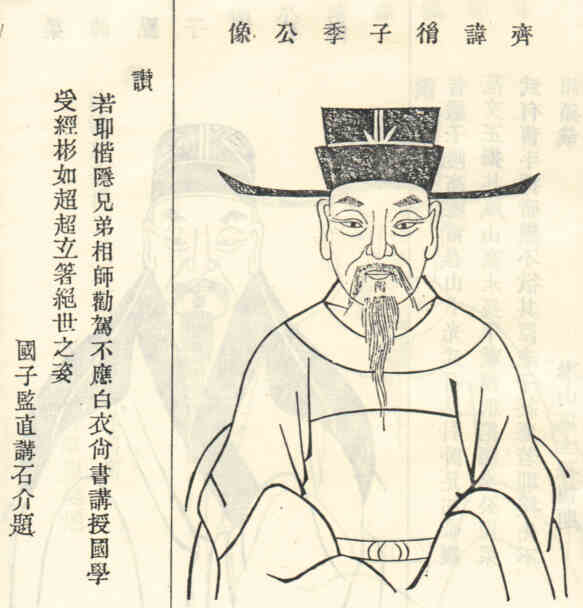 齊諱胤子季公像
讚
若耶偕隱兄弟相師勸駕不應白衣尙書講授國學
受經彬如超超立箸絕世之姿
國子監直講石介題